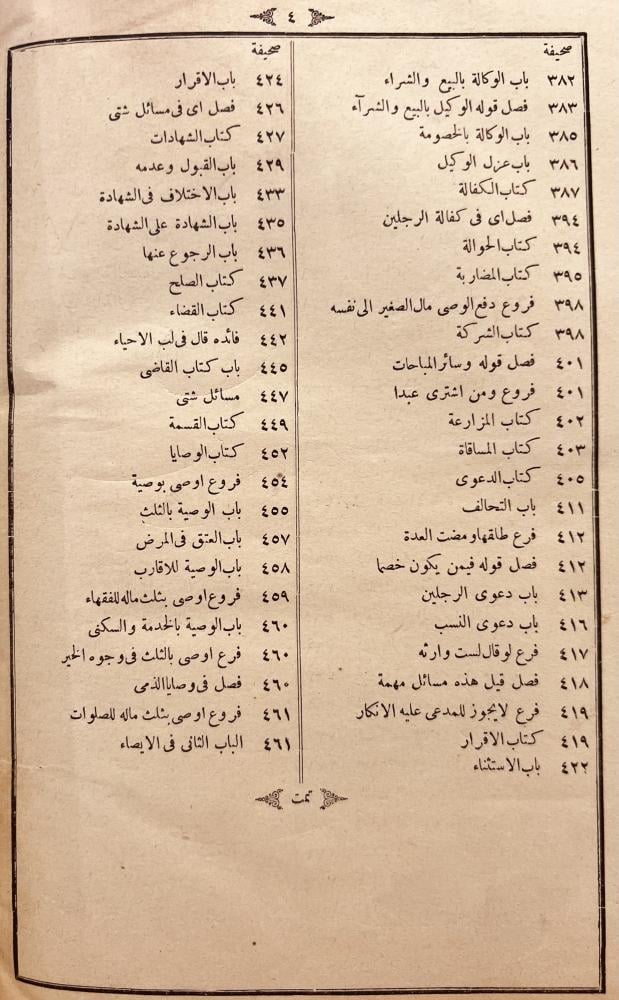 ٤
صحيفة
٣٨٢ باب الوكالة بالبيع والشراء
٣٨٣ فصل قوله الوكيل بالبيع والشرآء
٣٨٥ باب الوكالة بالخصومة
٣٨٦ باب عزل الوكيل
٣٨٧ كتاب الكفالة
٣٩٤ فصل اى فى كفالة الرجلين
٣٩٤ كتاب الحوالة
٣٩٥ كتاب المضاربة
٣٩٨ فروع دفع الوصى مال الصغير الى نفسه
٣٩٨ كتاب الشركة
٤٠١ فصل قوله وسائر المباحات
٤٠١ فروع ومن اشترى عبدا
٤٠٢ كتاب المزارعة
٤٠٣ كتاب المساقاة
٤٠٥ كتاب الدعوى
٤١١ باب التحالف
٤١٢ فرع طلقها ومضت العدة
٤١٢ فصل قوله فيمن يكون خصما
٤١٣ باب دعوى الرجلين
٤١٦ باب دعوى النسب
٤١٧ فرع لو قال لست وارثه
٤١٨ فصل قيل هذه مسائل مهمة
٤١٩ فرع لايجوز للمدعى عليه الانكار
٤١٩ كتاب الاقرار
٤٢٢ باب الاستثناء
صحيفة
٤٢٤ باب الاقرار
٤٢٦ فصل اى فى مسائل شتى
٤٢٧ كتاب الشهادات
٤٢٩ باب القبول وعدمه
٤٣٣ باب الاختلاف فى الشهادة
٤٣٥ باب الشهادة على الشهادة
٤٣٦ باب الرجوع عنها
٤٣٧ كتاب الصلح
٤٤١ كتاب القضاء
٤٤٢ فائده قال فى لب الاحياء
٤٤٥ باب كتاب القاضى
٤٤٧ مسائل شتى
٤٤٩ كتاب القسمة
٤٥٢ كتاب الوصايا
٤٥٤ فروع اوصى بوصية
٤٥٥ باب الوصية بالثلث
٤٥٧ باب العتق فى المرض
٤٥٨ باب الوصية للاقارب
٤٥٩ فروع اوصى بثلث ماله للفقهاء
٤٦٠ باب الوصية بالخدمة والسكنى
٤٦٠ فرع اوصى بالثلث فى وجوه الخير
٤٦٠ فصل فى وصايا الذمى
٤٦١ فروع اوصى بثلث ماله للصلوات
٤٦١ الباب الثانى فى الايصاء
تمت